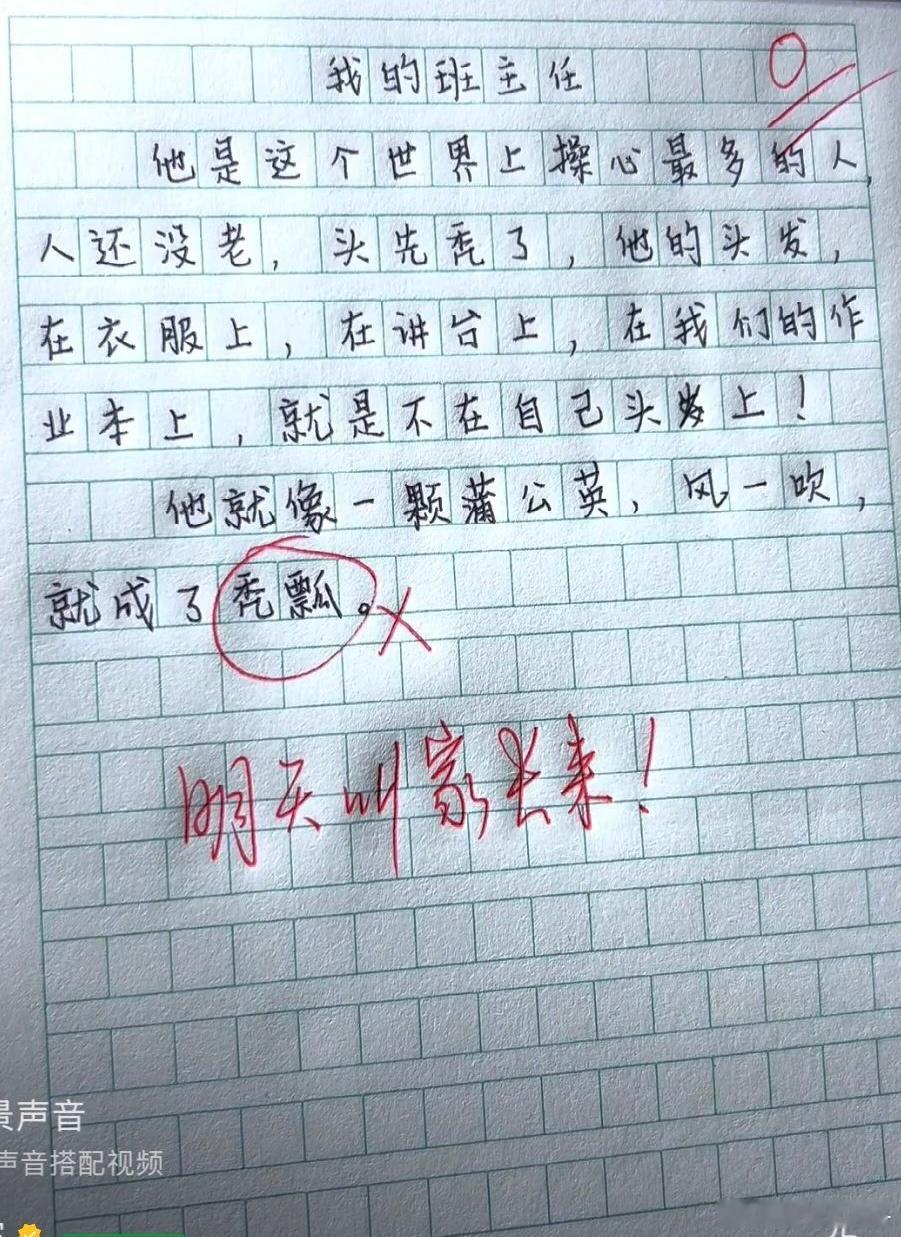 我的班主任
0
他是这个世界上操心最多的人,
人还没老,头先秃了,他的头发,
在衣服上,在讲台上,在我们的作
业本上,就是不在自己头发上!
他就像一颗蒲公英,风一吹,
就成了秃瓢。
明天叫家长来!
景声音
声音搭配视频